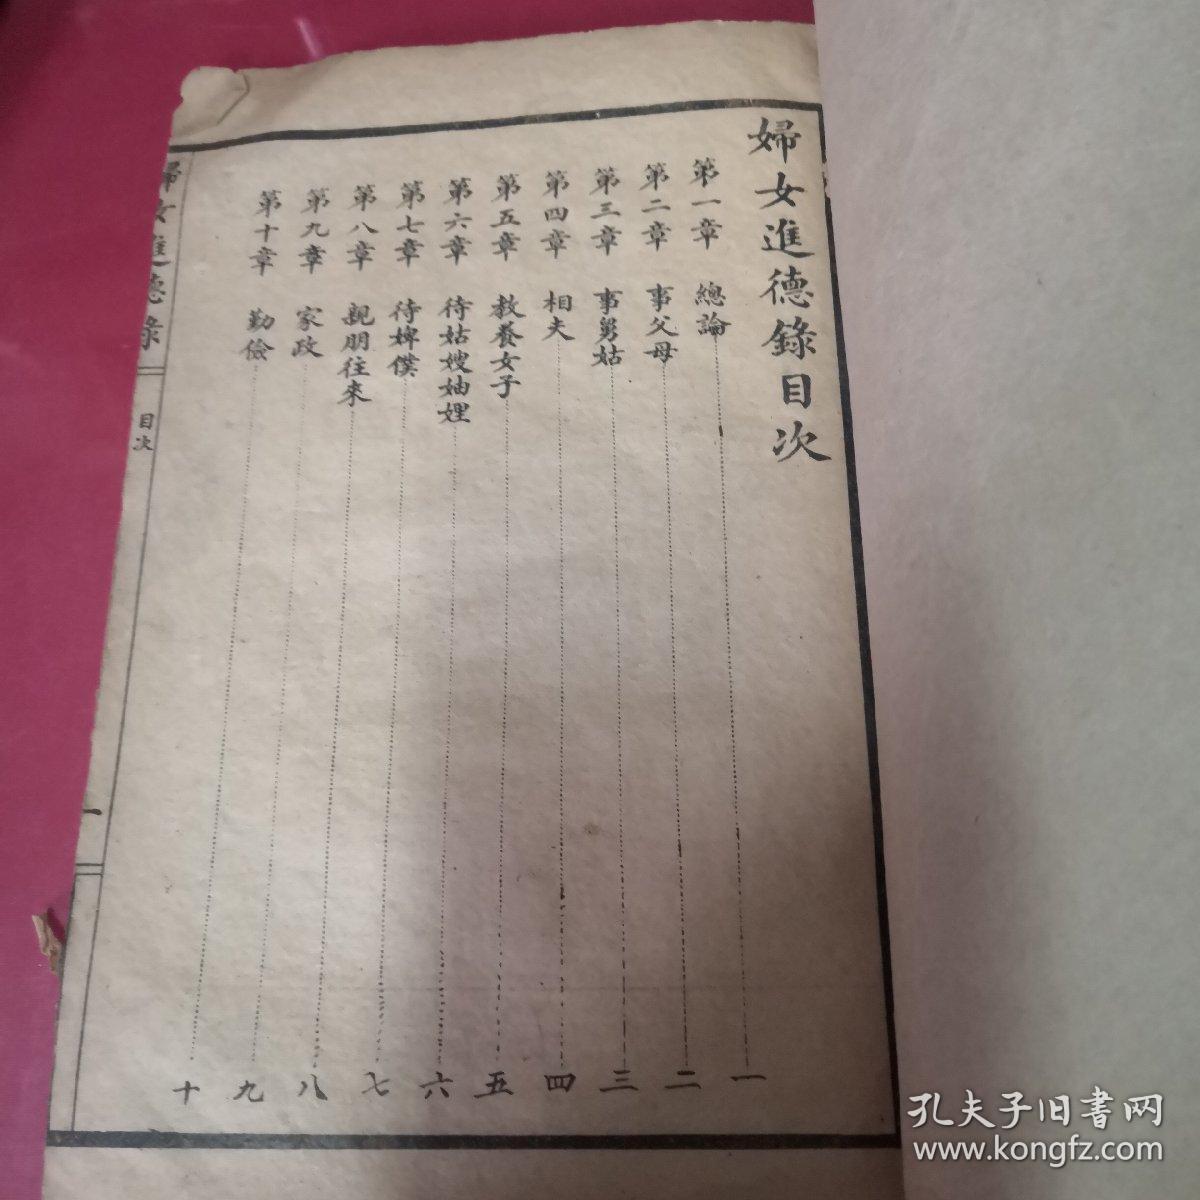 婦女進德錄目次
第一章 總論 一
第二章 事父母 二
第三章 事舅姑 三
第四章 相夫 四
第五章 教養女子 五
第六章 待姑嫂妯娌 六
第七章 待婢僕 七
第八章 親朋往來 八
第九章 家政 九
第十章 勤儉 十
婦女進德錄 目次 一
孔夫子旧书网
www.kongfz.com